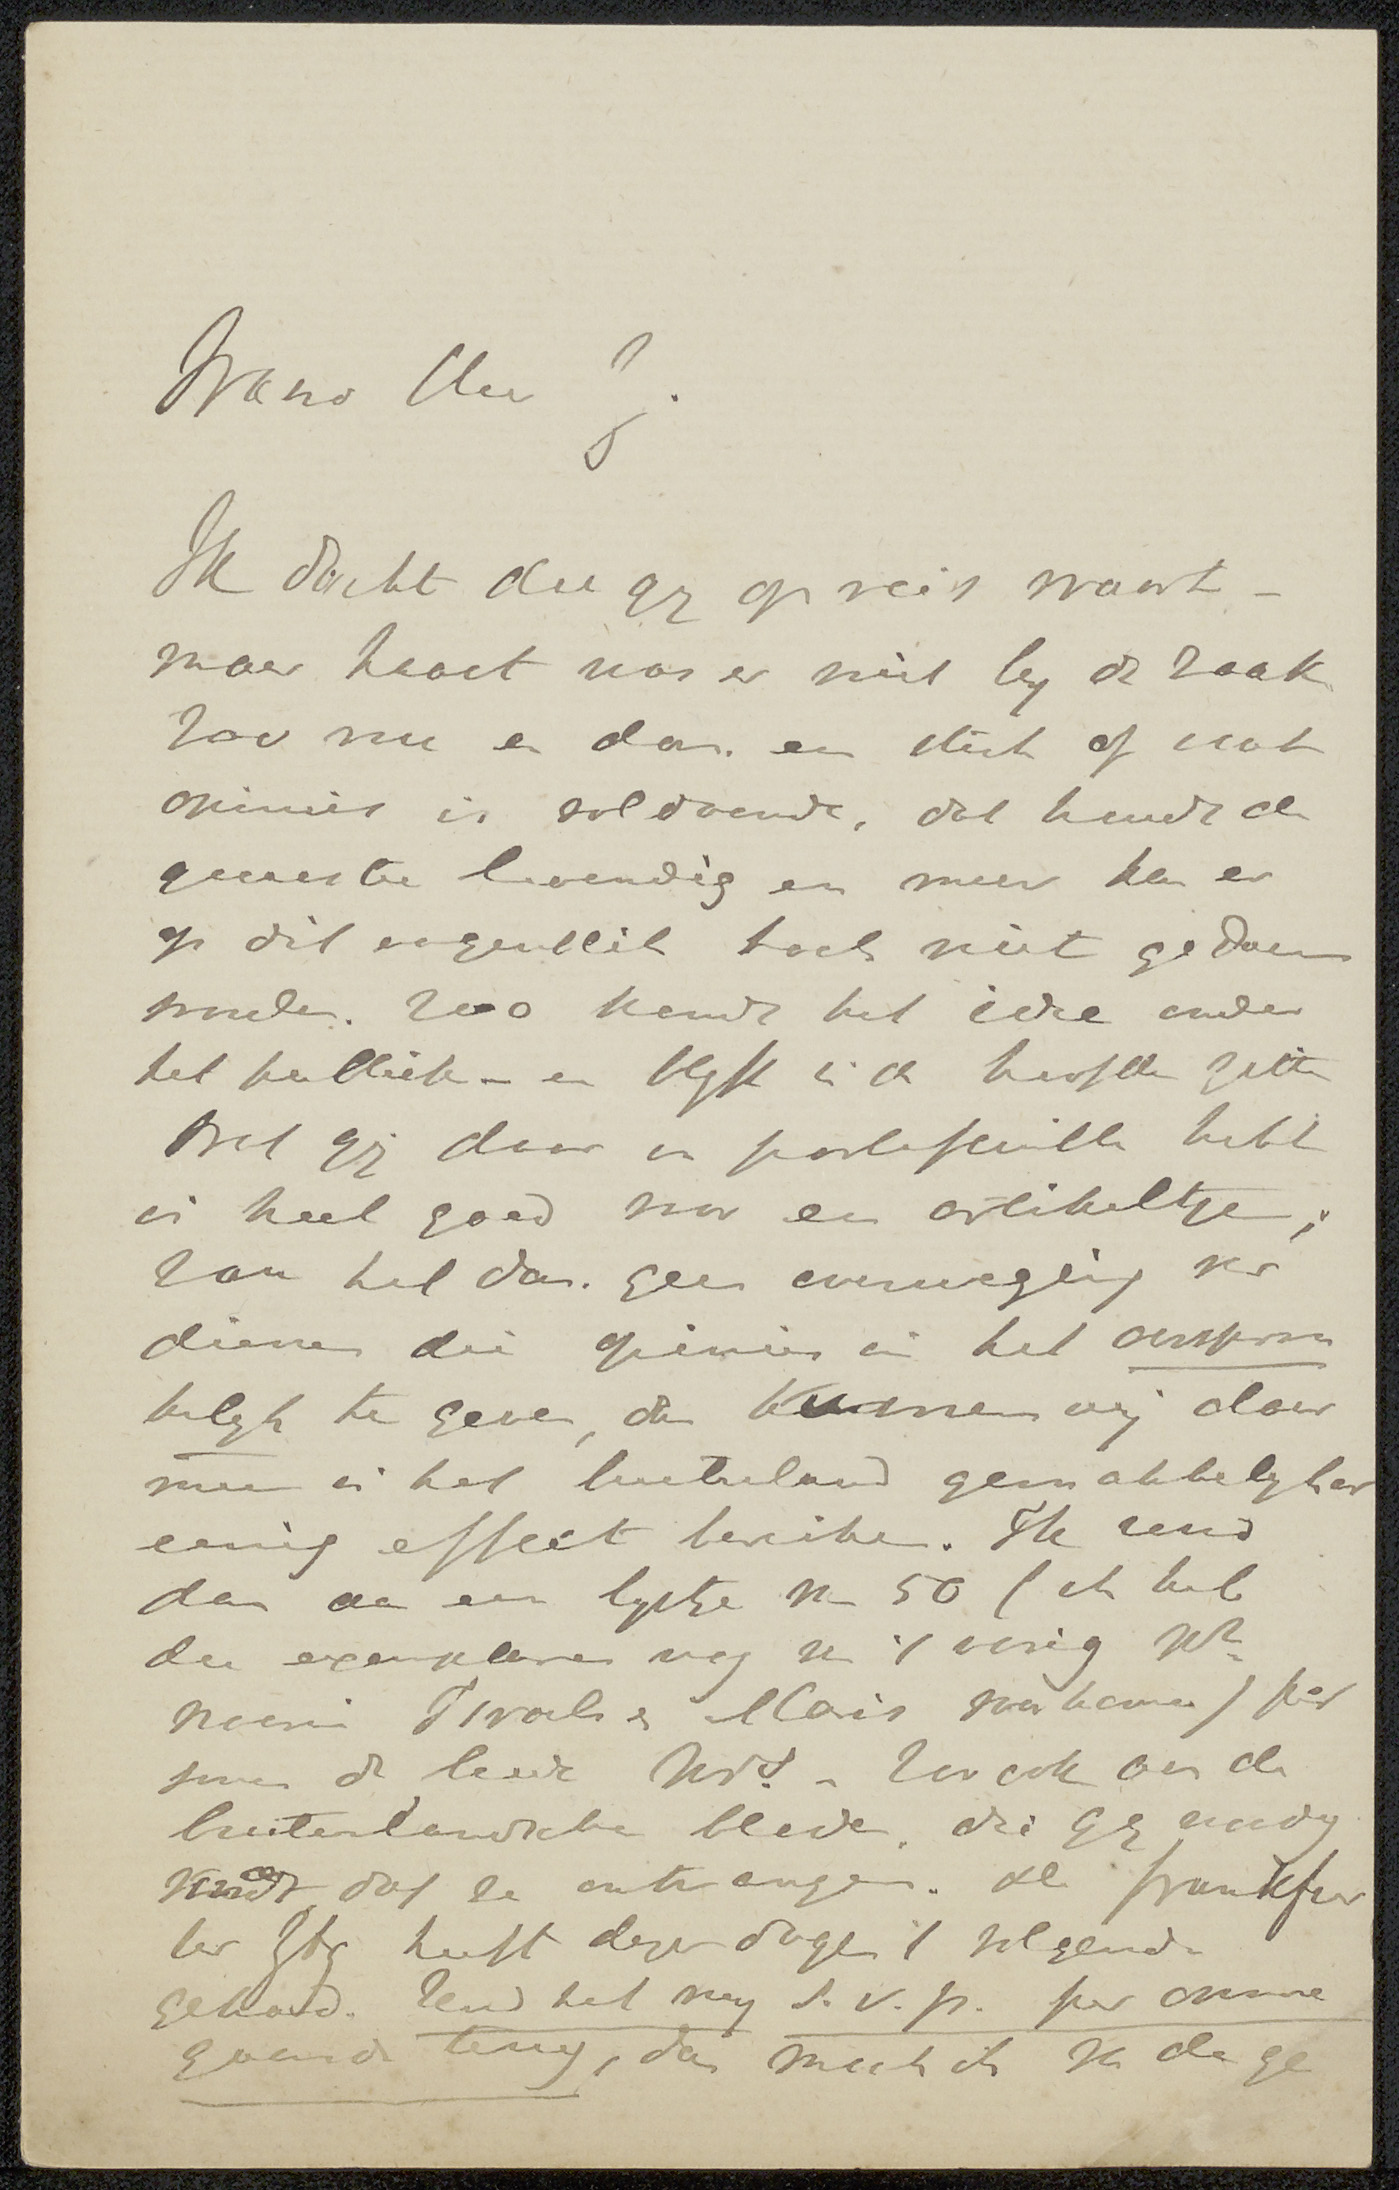 Waarde Heer J.
Ik dacht dat gij op reis waart –
maar haast was er niet bij de zaak
Zoo nu en dan een stuk of wat
opinies is voldoende, dat houdt de
geesten levendig en meer kan er
op dit oogenblik toch niet gedaan
worden. Zoo komt het idee onder
het publiek – en blijft in de hoofden zitten
Wat gij daar in portefeuille hebt
is heel goed voor een artikeltje;
zou het dan geen overweging ver
dienen die opinies in het oorspron
kelijk te geven, dan kunnen wij daar
mee in het buitenland gemakkelijker
eenig effect bereiken. Ik zend
dan aan een lijstje van 50 (ik heb
die exemplaren nog van 't vorig Nr
waarin voorkomen) per
de beide Nrs. – Zoo ook aan de
buitenlandsche bladen, die gij noodig
vindt dat ze ontvangen. De Frankfur
ter Ztg heeft dezer dagen 't volgende
gehad. Zend het mij s.v.p. per omme
gaande terug, dan maak ik van de ge